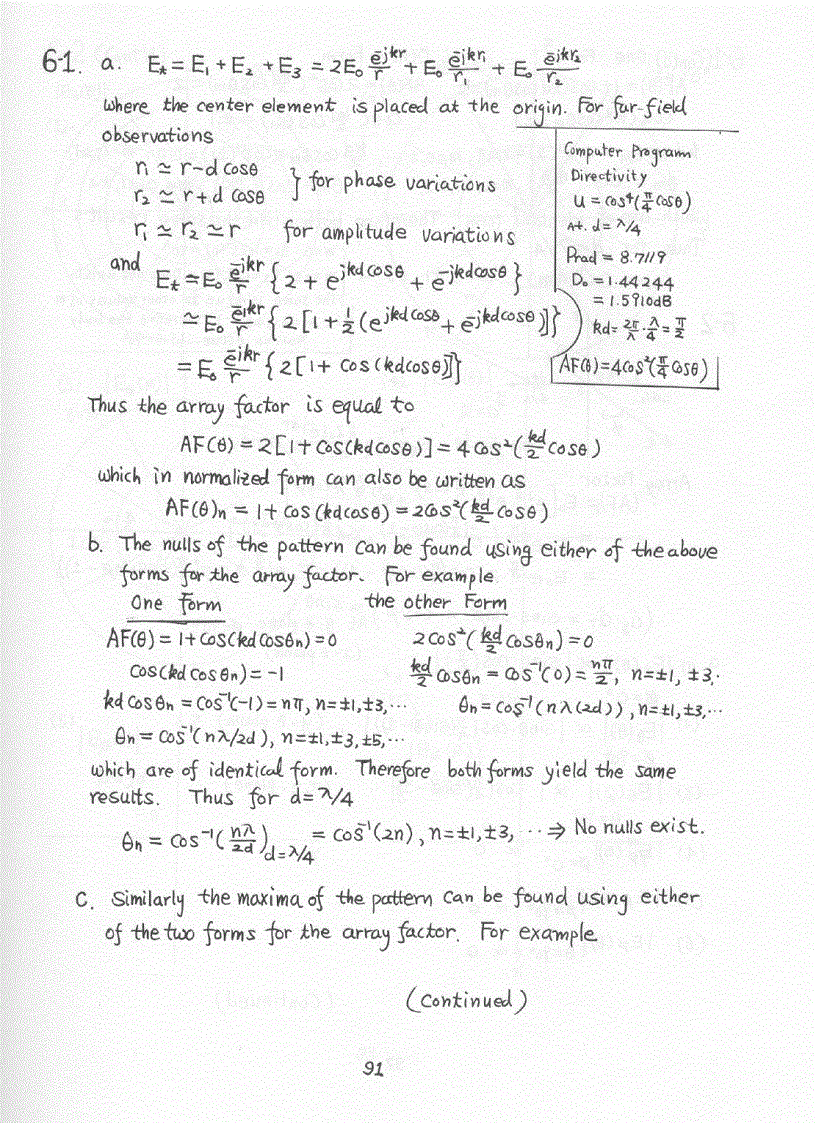 6-1. a. E_t = E₁ + E₂ + E₃ = 2E₀ e^{-jkr}/r + E₀ e^{-jkr₁}/r₁ + E₀ e^{-jkr₂}/r₂
where the center element is placed at the origin. For fur-field
observations
r₁ ≃ r - d cosθ
r₂ ≃ r + d cosθ } for phase variations
r₁ ≃ r₂ ≃ r for amplitude variations
and E_t ≃ E₀ e^{-jkr}/r { 2 + e^{jkd cosθ} + e^{-jkd cosθ} }
≃ E₀ e^{-jkr}/r { 2 [ 1 + ½ (e^{jkd cosθ} + e^{-jkd cosθ}) ] }
= E₀ e^{-jkr}/r { 2 [ 1 + cos (kd cosθ) ] }
Computer Program
Directivity
U = cos⁴(π/4 cosθ)
At. d = λ/4
Prad = 8.7119
D₀ = 1.44244
= 1.5910dB
kd = 2π/λ · λ/4 = π/2
AF(θ) = 4cos²(π/4 cosθ)
Thus the array factor is equal to
AF(θ) = 2 [ 1 + cos(kd cosθ) ] = 4 cos² (kd/2 cosθ)
which in normalized form can also be written as
AF(θ)n = 1 + cos (kd cosθ) = 2cos² (kd/2 cosθ)
b. The nulls of the pattern can be found using either of the above
forms for the array factor. For example
One Form the other Form
AF(θ) = 1 + cos(kd cosθn) = 0 2 cos² (kd/2 cosθn) = 0
cos(kd cosθn) = -1 kd/2 cosθn = cos⁻¹(0) = nπ/2, n=±1, ±3,·
kd cosθn = cos⁻¹(-1) = nπ, n=±1,±3,··· θn = cos⁻¹(nλ(2d)), n=±1,±3,···
θn = cos⁻¹(nλ/2d), n=±1,±3,±5,···
which are of identical form. Therefore both forms yield the same
results. Thus for d=λ/4
θn = cos⁻¹(nλ/2d)_{d=λ/4} = cos⁻¹(2n), n=±1,±3, ··· ⇒ No nulls exist.
c. Similarly the maxima of the pattern can be found using either
of the two forms for the array factor. For example
(Continued)
91